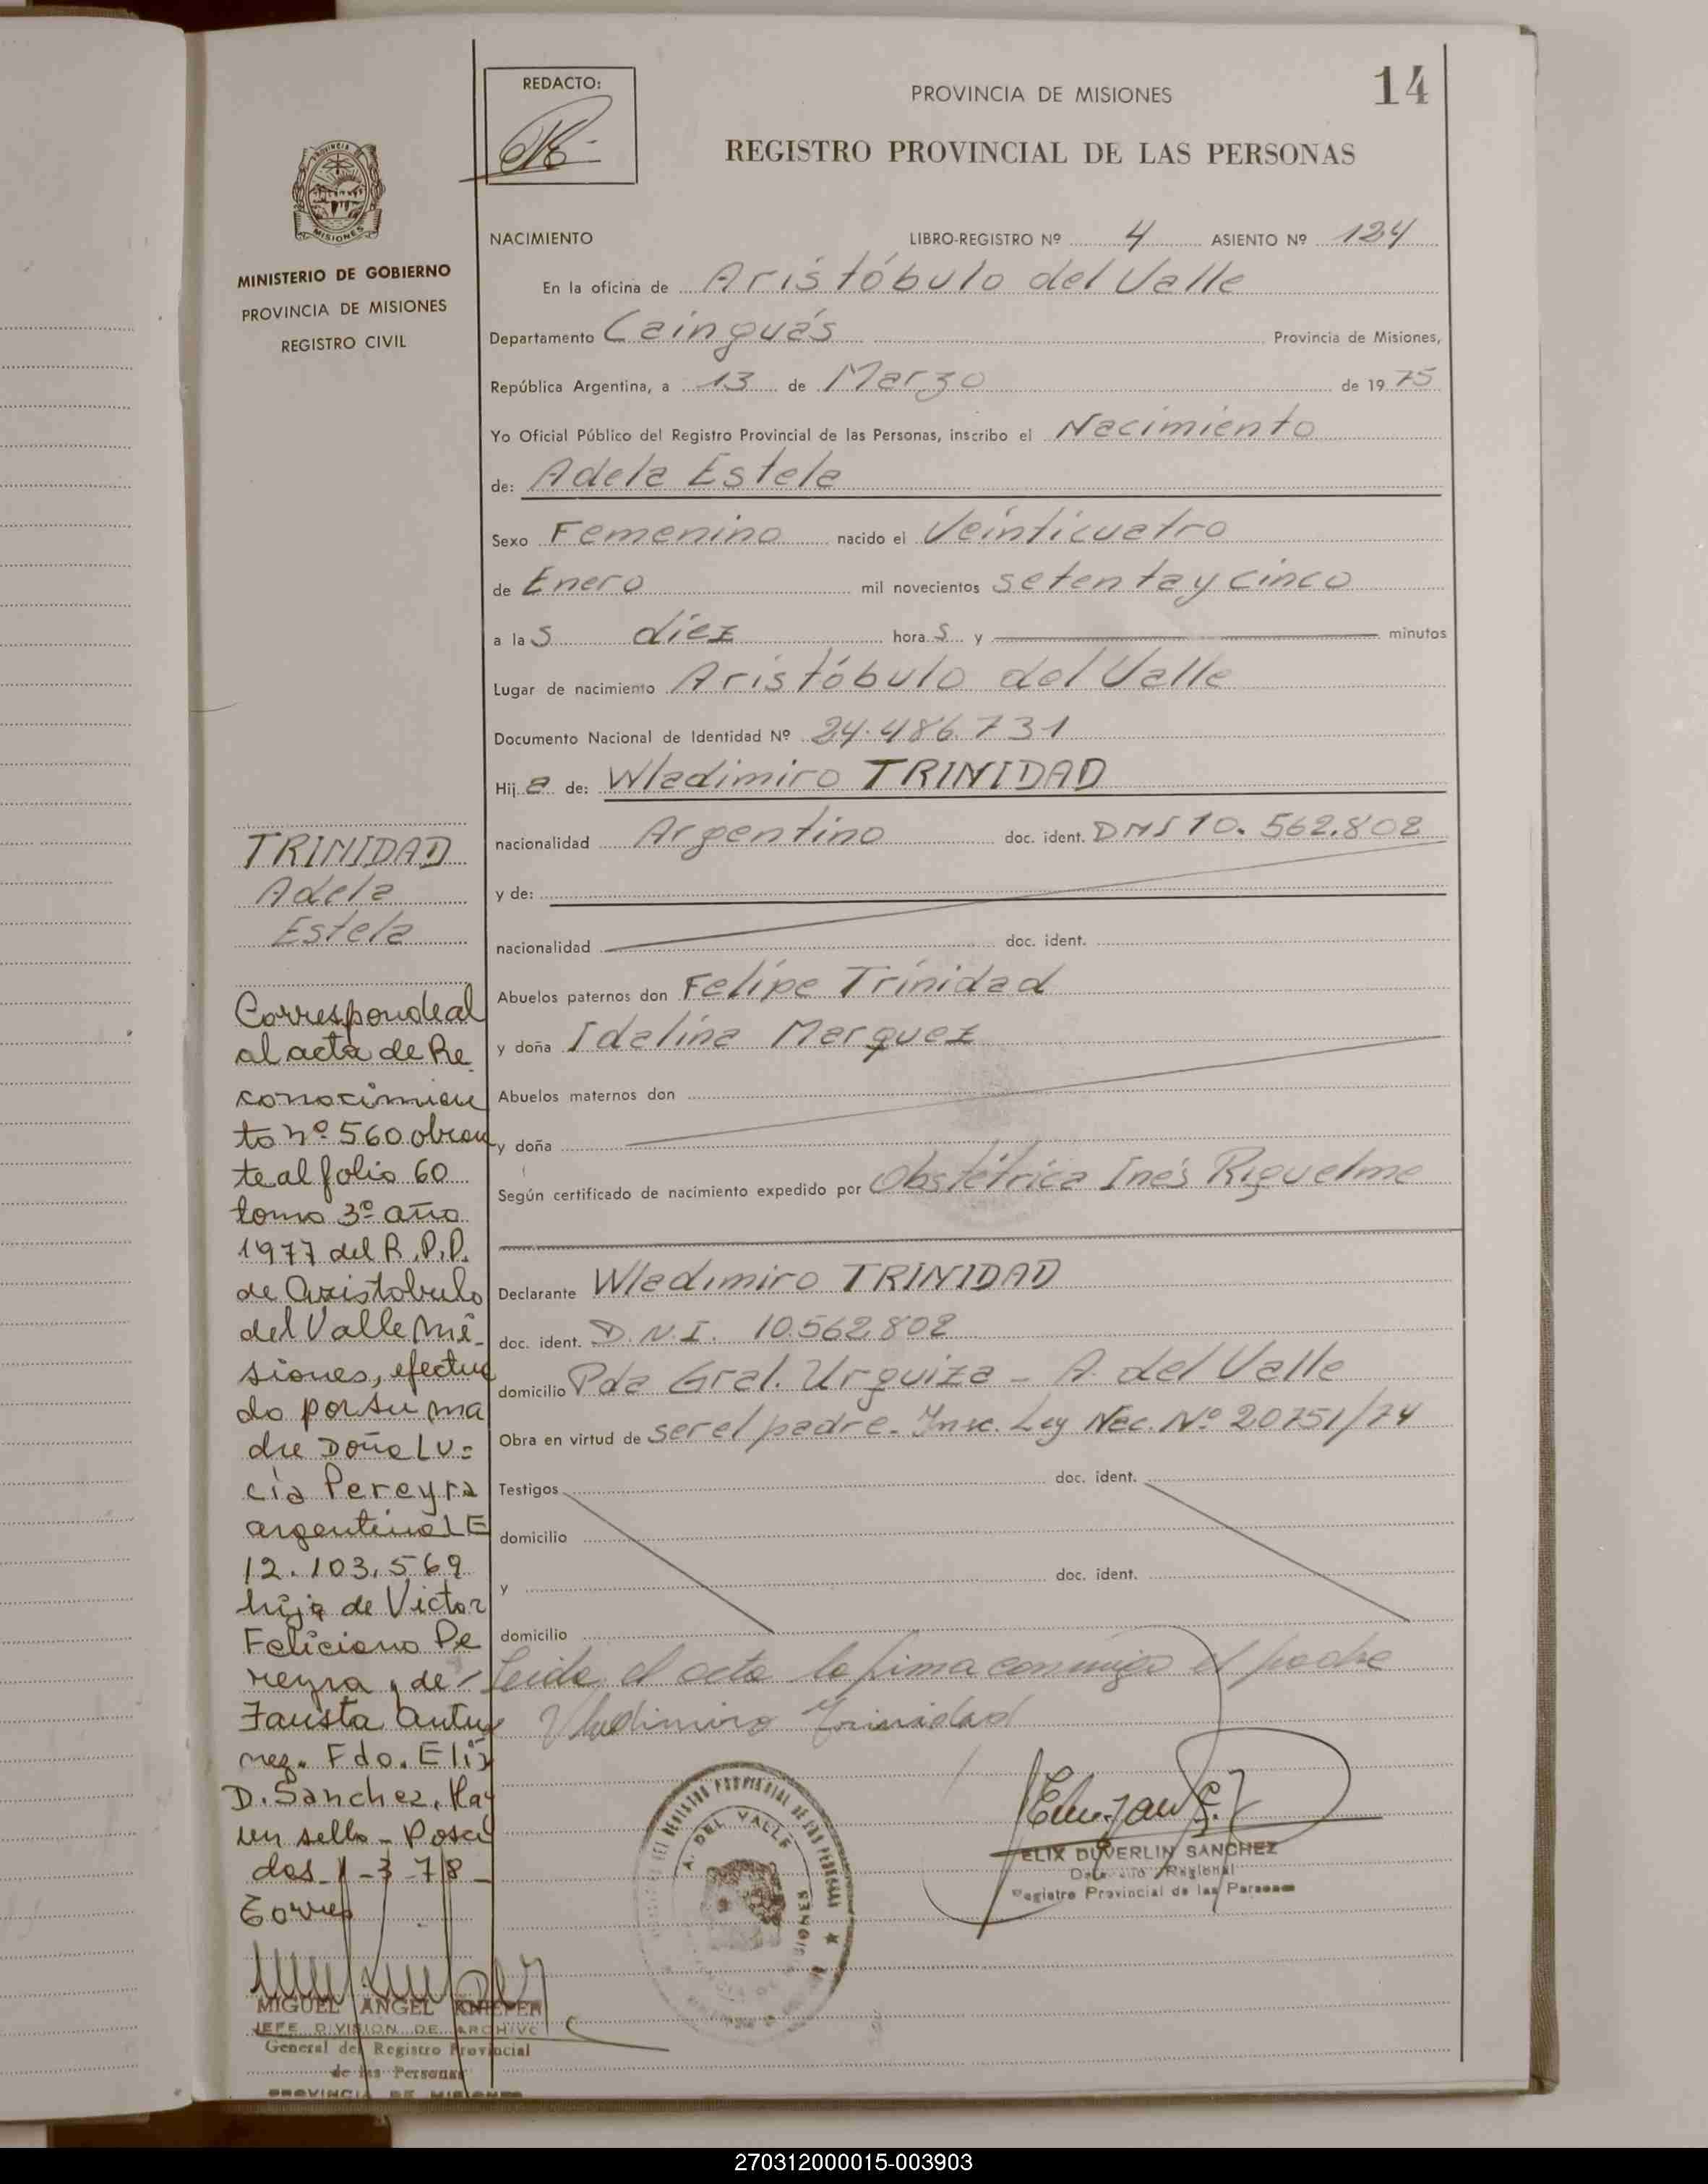 14
REDACTO:
PROVINCIA DE MISIONES
REGISTRO PROVINCIAL DE LAS PERSONAS
PROVINCIA DE
MISIONES
MINISTERIO DE GOBIERNO
PROVINCIA DE MISIONES
REGISTRO CIVIL
NACIMIENTO LIBRO-REGISTRO Nº 4 ASIENTO Nº 124
En la oficina de Aristóbulo del Valle
Departamento Cainguás Provincia de Misiones,
República Argentina, a 13 de Marzo de 19 75
Yo Oficial Público del Registro Provincial de las Personas, inscribo el Nacimiento
de: Adela Estela
Sexo Femenino nacido el Veinticuatro
de Enero mil novecientos setenta y cinco
a la s diez hora s y minutos
Lugar de nacimiento Aristóbulo del Valle
Documento Nacional de Identidad Nº 24.486.731
Hij a de: Wladimiro TRINIDAD
nacionalidad Argentino doc. ident. DNI 10.562.802
y de:
nacionalidad doc. ident.
Abuelos paternos don Felipe Trinidad
y doña Idalina Marquez
Abuelos maternos don
y doña
Según certificado de nacimiento expedido por Obstétrica Inés Riquelme
Declarante Wladimiro TRINIDAD
doc. ident. D.N.I. 10.562.802
domicilio Pda Gral. Urquiza - A. del Valle
Obra en virtud de ser el padre. Insc. Ley Nac. Nº 20751/74
Testigos doc. ident.
domicilio
y doc. ident.
domicilio
Leida el acta la firma conmigo el padre
Wladimiro Trinidad
TRINIDAD
Adela
Estela
Corresponde al
al acta de Re
conocimien
to nº 560 obran
te al folio 60
tomo 3º año
1977 del R.P.P.
de Aristobulo
del Valle Mi-
siones, efectua
do por su ma
dre Doña Lu=
cía Pereyra
argentina LE
12.103.569
hija de Victor
Feliciano Pe
reyra y de
Fausta Antu
nez. Fdo. Elix
D. Sanchez. Hay
un sello - Posa
das 1-3-78-
Torres
MIGUEL ANGEL KNIEPER
JEFE DIVISION DE ARCHIVO
General del Registro Provincial
de las Personas
PROVINCIA DE MISIONES
DEL REGISTRO PROVINCIAL DE LAS PERSONAS
A. DEL VALLE
ELIX DUVERLIN SANCHEZ
Delegado Regional
Registro Provincial de las Personas
270312000015-003903